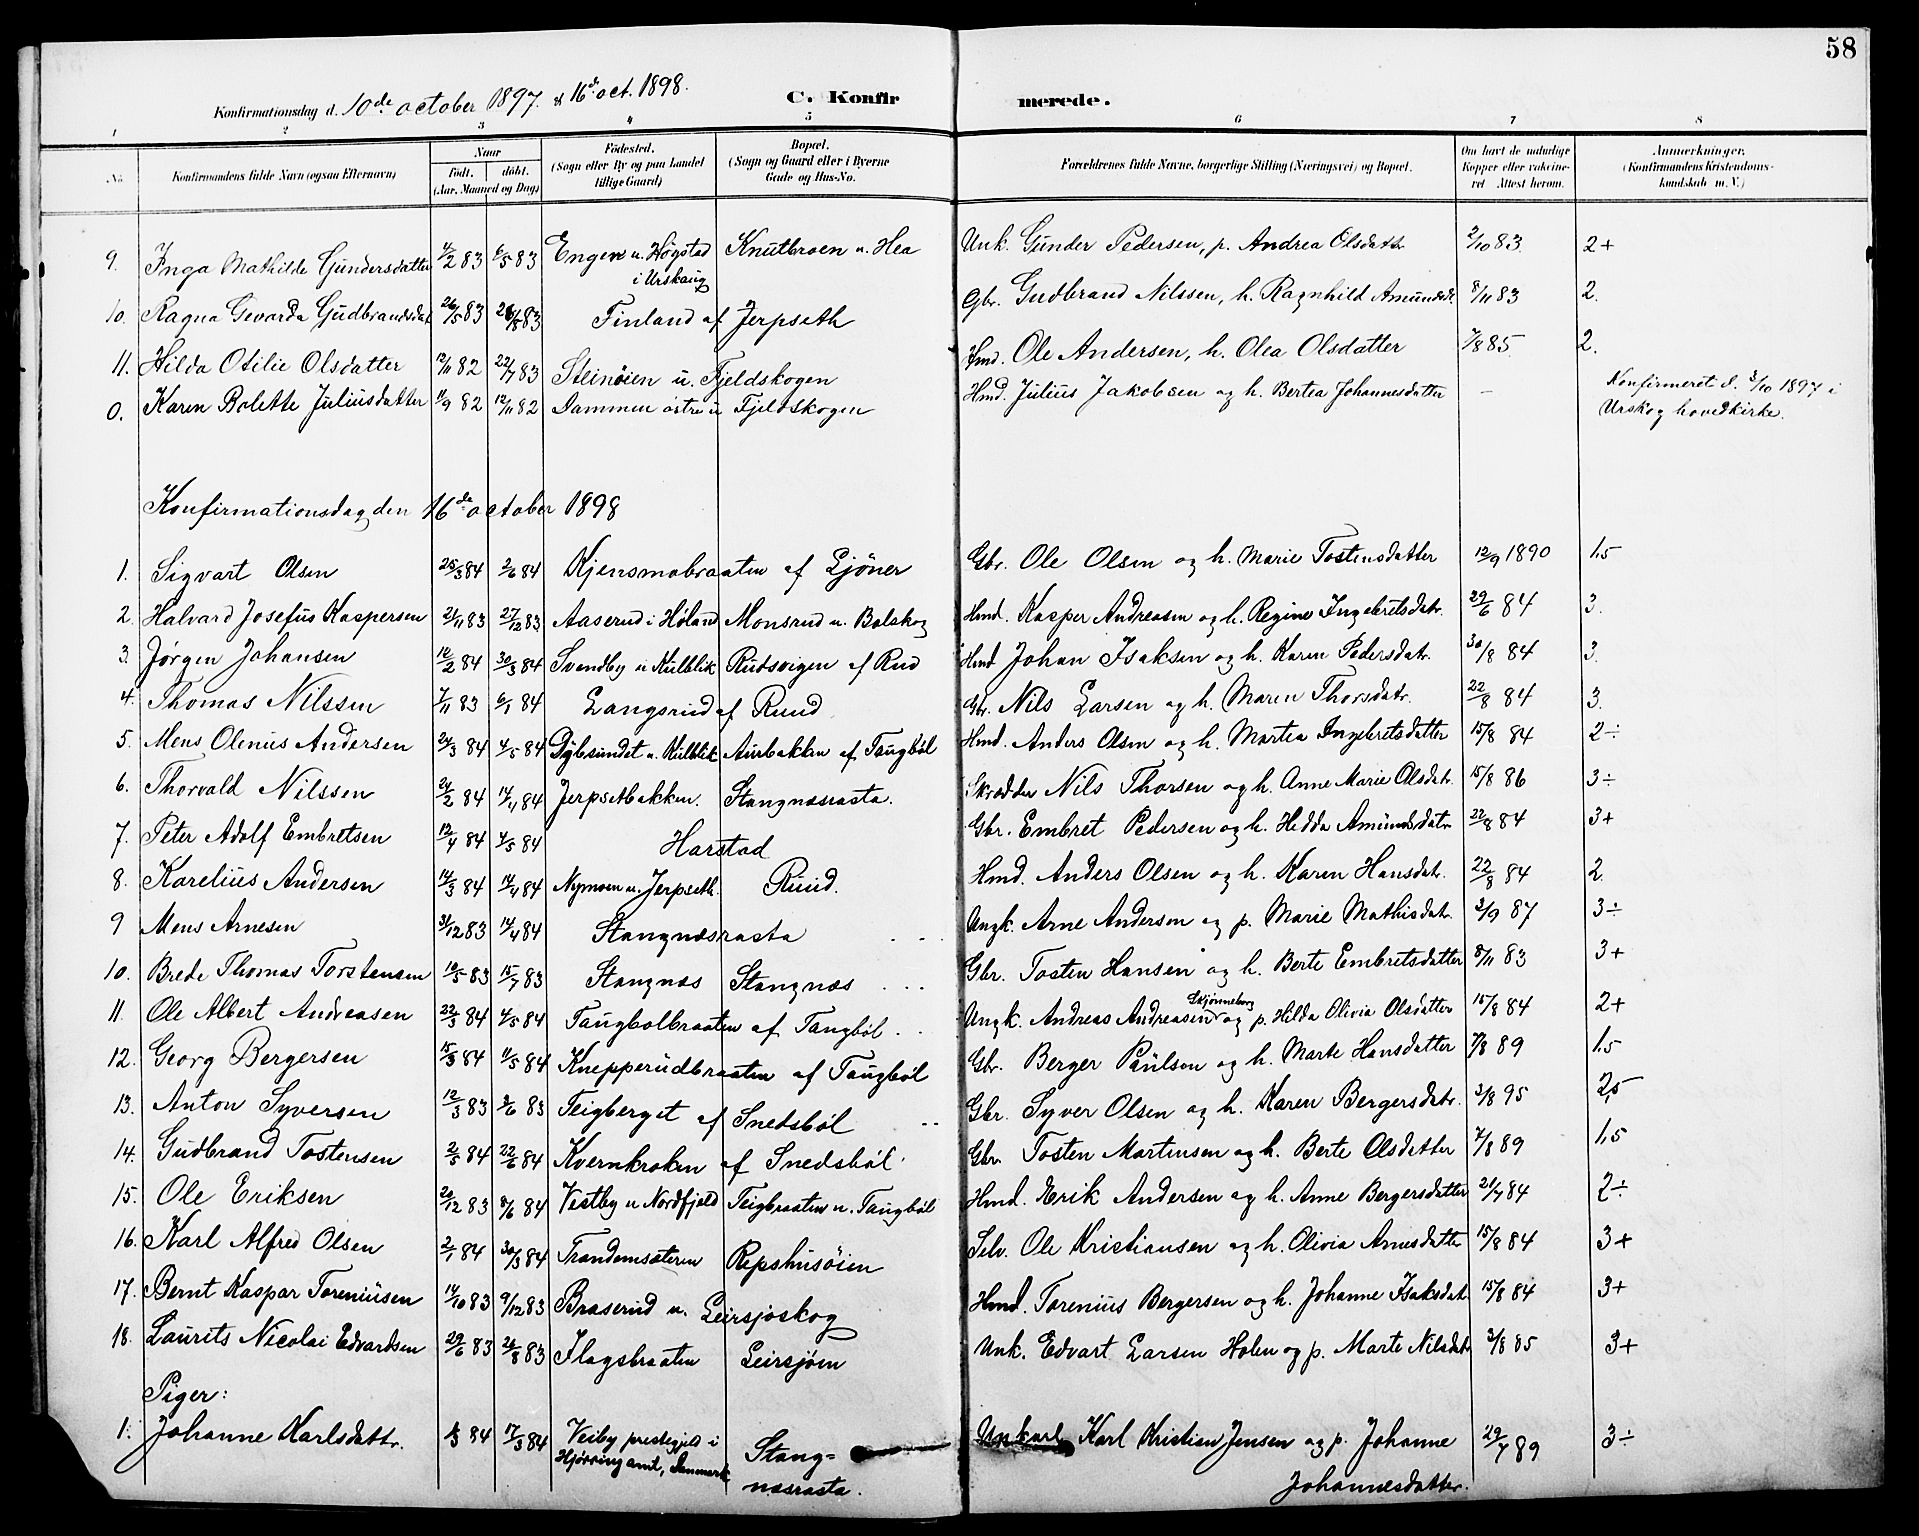 58
Konfirmationsdag d. 10de october 1897. & 16de oct. 1898.
C. Konfirmerede.
1 2 3 4 5 6 7 8
No. Konfirmandens fulde Navn (ogsaa Efternavn) Naar født. døbt. (Aar, Maaned og Dag) Fødested. (Sogn eller By og paa Landet tillige Gaard) Bopæl. (Sogn og Gaard eller i Byerne Gade og Hus-No. Forældrenes fulde Navne, borgerlige Stilling (Næringsvei) og Bopæl. Om havt de naturlige Kopper eller vakcineret Attest herom. Anmerkninger, (Konfirmandens Kristendomskundskab m. V.)
9. Inga Mathilde Gundersdatter 4/2 83 6/5 83 Engen u. Høgstad i Urskaug Knutbroen u. Hea Unk. Gunder Pedersen, p. Andrea Olsdatr 2/10 83. 2+
10. Ragna Gevarda Gudbrandsdat 26/5 83 26/8 83 Finland af Jerpseth Gbr. Gudbrand Nilssen, h. Ragnhild Amundsdr. 8/11 83 2.
11. Hilda Otilie Olsdatter 12/11 82 22/7 83 Steinøien u. Fjeldskogen Hmd. Ole Andersen, h. Olea Olsdatter 7/8 85. 2.
0. Karen Bolette Juliusdatter 11/9 82 12/11 82 Dammen østre u Fjeldskogen Hmd. Julius Jakobsen og h. Bertea Johannesdatter – Konfirmeret d. 3/10 1897 i Urskog hovedkirke.
Konfirmationsdag den 16de october 1898
1. Sigvart Olsen 25/3 84 2/6 84 Kjensmobraaten af Ljöner Gbr. Ole Olsen og h. Marie Tostensdatter 12/9 1890 1,5
2. Halvard Josefus Kaspersen 21/11 83 27/12 83 Aaserud i Høland Monsrud u. Bolskog Hmd. Kasper Andreasen og h. Regine Ingebretsdatr. 29/6 84 3.
3. Jørgen Johansen 10/2 84 30/3 84 Svendby u Kulblik Rudsvigen af Rud Hmd Johan Isaksen og h. Karen Pedersdatr. 30/8 84 3.
4. Thomas Nilssen 7/11 83 6/1 84 Langsrud af Ruud Gbr. Nils Larsen og h. Maren Thorsdatr. 22/8 84 3.
5. Mens Olenus Andersen 24/3 84 4/5 84 Dybsundet u. Kulblik Aurbakken af Taugbøl Hmd. Anders Olsen og h. Martea Ingebretsdatter 15/8 84 2÷
6. Thorvald Nilssen 24/2 84 14/4 84 Jerpsetbakken. Stangnæsrasta. Skrædder Nils Thorsen og h. Anne Marie Olsdatr. 15/8 86 3÷
7. Peter Adolf Embretsen 12/4 84 4/5 84 Harstad Gbr. Embret Pedersen og h. Hedda Amundsdatr. 22/8 84 3+
8. Karelius Andersen 14/3 84 14/4 84 Nymoen u. Jerpseth. Ruud. Hmd. Anders Olsen og h. Karen Hansdatr. 22/8 84 2.
9 Mens Arnesen 31/12 83 14/4 84 Stangnæsrasta Ungk. Arne Andersen og p. Marie Mathisdatr. 2/9 87 3÷
10. Brede Thomas Torstensen 10/5 83 15/7 83 Stangnæs Stangnæs Gbr. Tosten Hansen og h. Berte Embretsdatter 8/11 83 3+
11. Ole Albert Andreasen 22/3 84 4/5 84 Taugbolbraaten af Taugbøl Ungk. Andreas Andreasen Skjønneborg og p. Hilda Olivia Olsdatter 15/8 84 2+
12. Georg Bergersen 15/3 84 11/5 84 Knepperudbraaten af Taugbøl Gbr. Berger Paulsen og h. Marte Hansdatter 7/8 89 1,5
13. Anton Syversen 12/3 83 3/6 83 Teigberget af Snedsböl Gbr. Syver Olsen og h. Karen Bergersdatr. 3/8 95 2,5
14. Gudbrand Tostensen 2/5 84 22/6 84 Kvernkroken af Snedsbøl Gbr. Tosten Martinsen og h. Berte Olsdatter 7/8 89 1,5
15. Ole Eriksen 20/12 83 8/6 84 Vestby u Nordfjeld Teigbraaten u. Taugbøl Hmd. Erik Andersen og h. Anne Bergersdatter 21/7 84 2÷
16. Karl Alfred Olsen 2/1 84 30/3 84 Trandemsæteren Repshusøien Selv. Ole Kristiansen og h. Olivia Arnesdatter 15/8 84 3+
17. Bernt Kaspar Toreniusen 14/10 83 9/12 83 Braserud u. Leirsjøskog Hmd. Torenius Bergersen og h. Johanne Isaksdat 15/8 84 3+
18. Laurits Nicolai Edvardsen 29/6 83 26/8 83 Flagsbraaten Leirsjøen Unk. Edvart Larsen Holen og p. Marte Nilsdat 3/8 85 3+
Piger:
1. Johanne Karlsdattr. 1/3 84 17/3 84 Veiby prestegjeld i Hjørring amt, Danmark Stangnæsrasta. Unkarl Karl Kristian Jensen og p. Johanne Johannesdatter. 29/7 89 3÷